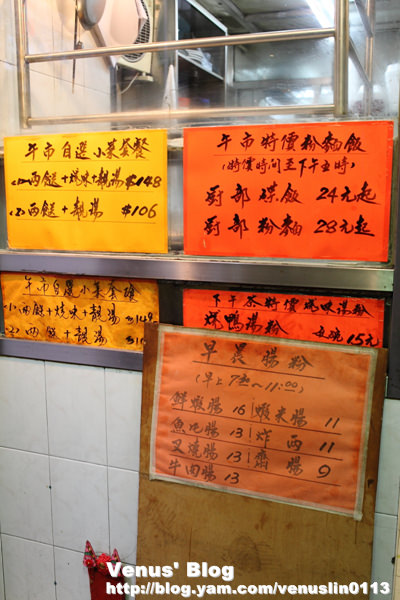 午市自選小菜套餐
(1)両餸+燒味+靚湯 $148
(2)両餸+靚湯 $106
午市特價粉麵飯
(特價時間至下午五時)
廚部碟飯 24元起
廚部粉麵 28元起
午市自選小菜套飧
(1)両餸+燒味+靚湯
(2)両餸+靚湯
下午茶特價燒味湯粉
燒鴨湯粉
15元
早晨腸粉
(早上7:30~11:00)
鮮蝦腸 16 蝦米腸 11
魚肉腸 13 炸両 11
叉燒腸 13 齋腸 9
牛肉腸 13
Venus' Blog
http://blog.yam.com/venuslin0113